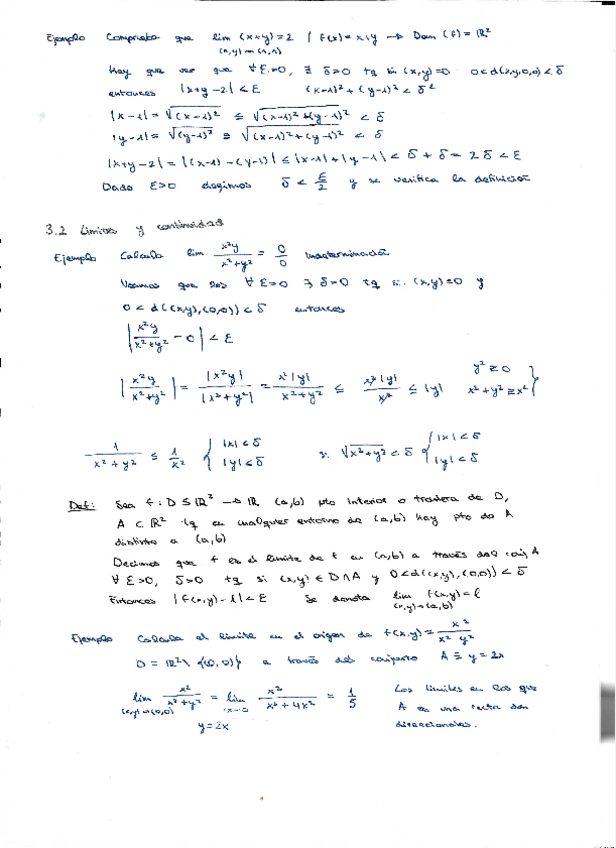 Ejemplo Comprueba que lim (x+y)=2 / f(x)=x+y → Dom (f)=ℝ²
(x,y)→(1,1)
Hay que ver que ∀ε>0, ∃ δ>0 tq si (x,y)=0 0<d(x,y,0,0)<δ
entonces |x+y-2|<ε (x-1)²+(y-1)²<δ²
|x-1|=√(x-1)² ≤ √(x-1)²+(y-1)² < δ
|y-1|=√(y-1)² ≤ √(x-1)²+(y-1)² < δ
|x+y-2|=|(x-1)-(y-1)|≤|x-1|+|y-1|<δ+δ=2δ<ε
Dado ε>0 elegimos δ<ε/2 y se verifica la definición
3.2 Límites y continuidad
Ejemplo Calcula lim x²y/(x²+y²) = 0/0 Indeterminación
Veamos que ∀ε=0 ∃ δ=0 tq si (x,y)=0 y
0<d((x,y),(0,0))<δ entonces
|x²y/(x²+y²) - 0| < ε
|x²y/(x²+y²)| = |x²y|/|x²+y²| = x²|y|/(x²+y²) ≤ x²|y|/x² ≤ |y| y²≥0 x²+y²≥x² }
1/(x²+y²) ≤ 1/x² { |x|<δ |y|<δ si √x²+y²<δ { |x|<δ |y|<δ
Def: Sea f: D⊆ℝ² → ℝ (a,b) pto interior o frontera de D,
A⊂ℝ² tq en cualquier entorno de (a,b) hay pto de A
distinto a (a,b)
Decimos que f es el límite de f en (a,b) a través del conj A
∀ε>0, δ>0 tq si (x,y)∈D∩A y 0<d((x,y),(0,0))<δ
Entonces |f(x,y)-l|<ε Se denota lim f(x,y)=l
(x,y)→(a,b)
Ejemplo Calcula el límite en el origen de f(x,y)= x²/(x² y²)
D=ℝ²\{(0,0)} a través del conjunto A≡y=2x
lim x²/(x²+y²) = lim x²/(x²+4x²) = 1/5 Los límites en los que
(x,y)→(0,0) x→0 A es una recta son
y=2x direccionales.